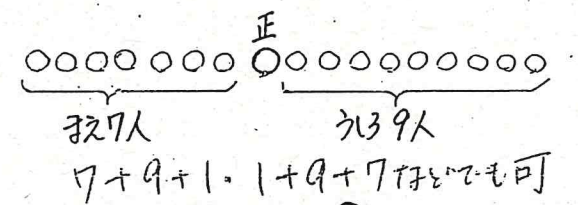 正
まえ7人 うしろ9人
7+9+1. 1+9+7などでも可